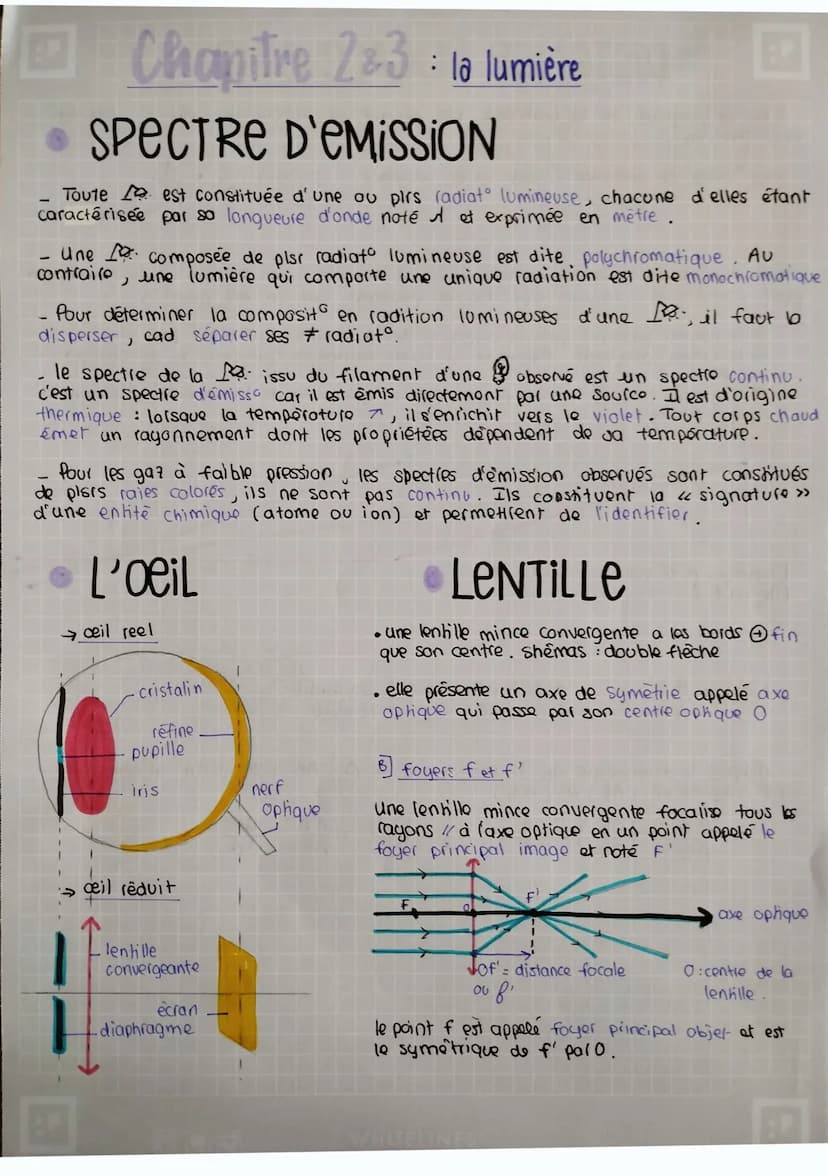 Chapitre 2&3 : la lumière
SPECTRE D'EMISSION
- Toute est constituée d'une ou plrs radiat° lumineuse, chacune d'elles étant
caractérisée par sa longueure d'onde noté λ et exprimée en mètre.
- Une composée de plsr radiat° lumineuse est dite polychromatique. Au
contraire, une lumière qui comporte une unique radiation est dite monochromatique
- Pour déterminer la composit° en radition lumineuses d'une , il faut la
disperser, cad séparer ses ≠ radiat°.
- le spectre de la issu du filament d'une observé est un spectre continu.
c'est un spectre d'émiss° car il est émis directement par une source. Il est d'origine
thermique : lorsque la température ↗, il s'enrichit vers le violet. Tout corps chaud
émet un rayonnement dont les propriétées dépendent de sa température.
- Pour les gaz à faible pression, les spectres d'émission observés sont constitués
de plsrs raies colorés, ils ne sont pas continu. Ils constituent la « signature »
d'une entité chimique (atome ou ion) et permettent de l'identifier.
L'OEIL
→ œil reel
cristalin
rétine
pupille
iris
nerf
optique
→ œil réduit
lentille
convergeante
écran
diaphragme
LENTILLE
• une lentille mince convergente a les bords ⊕ fin
que son centre. shémas : double flèche
• elle présente un axe de symétrie appelé axe
optique qui passe par son centre optique O
B] foyers f et f'
Une lentille mince convergente focalise tous les
rayons // à l'axe optique en un point appelé le
foyer principal image et noté F'
F
O
F'
axe optique
OF' = distance focale
ou f'
O : centre de la
lentille.
le point f est appelé foyer principal objet et est
le symétrique de f' par O.